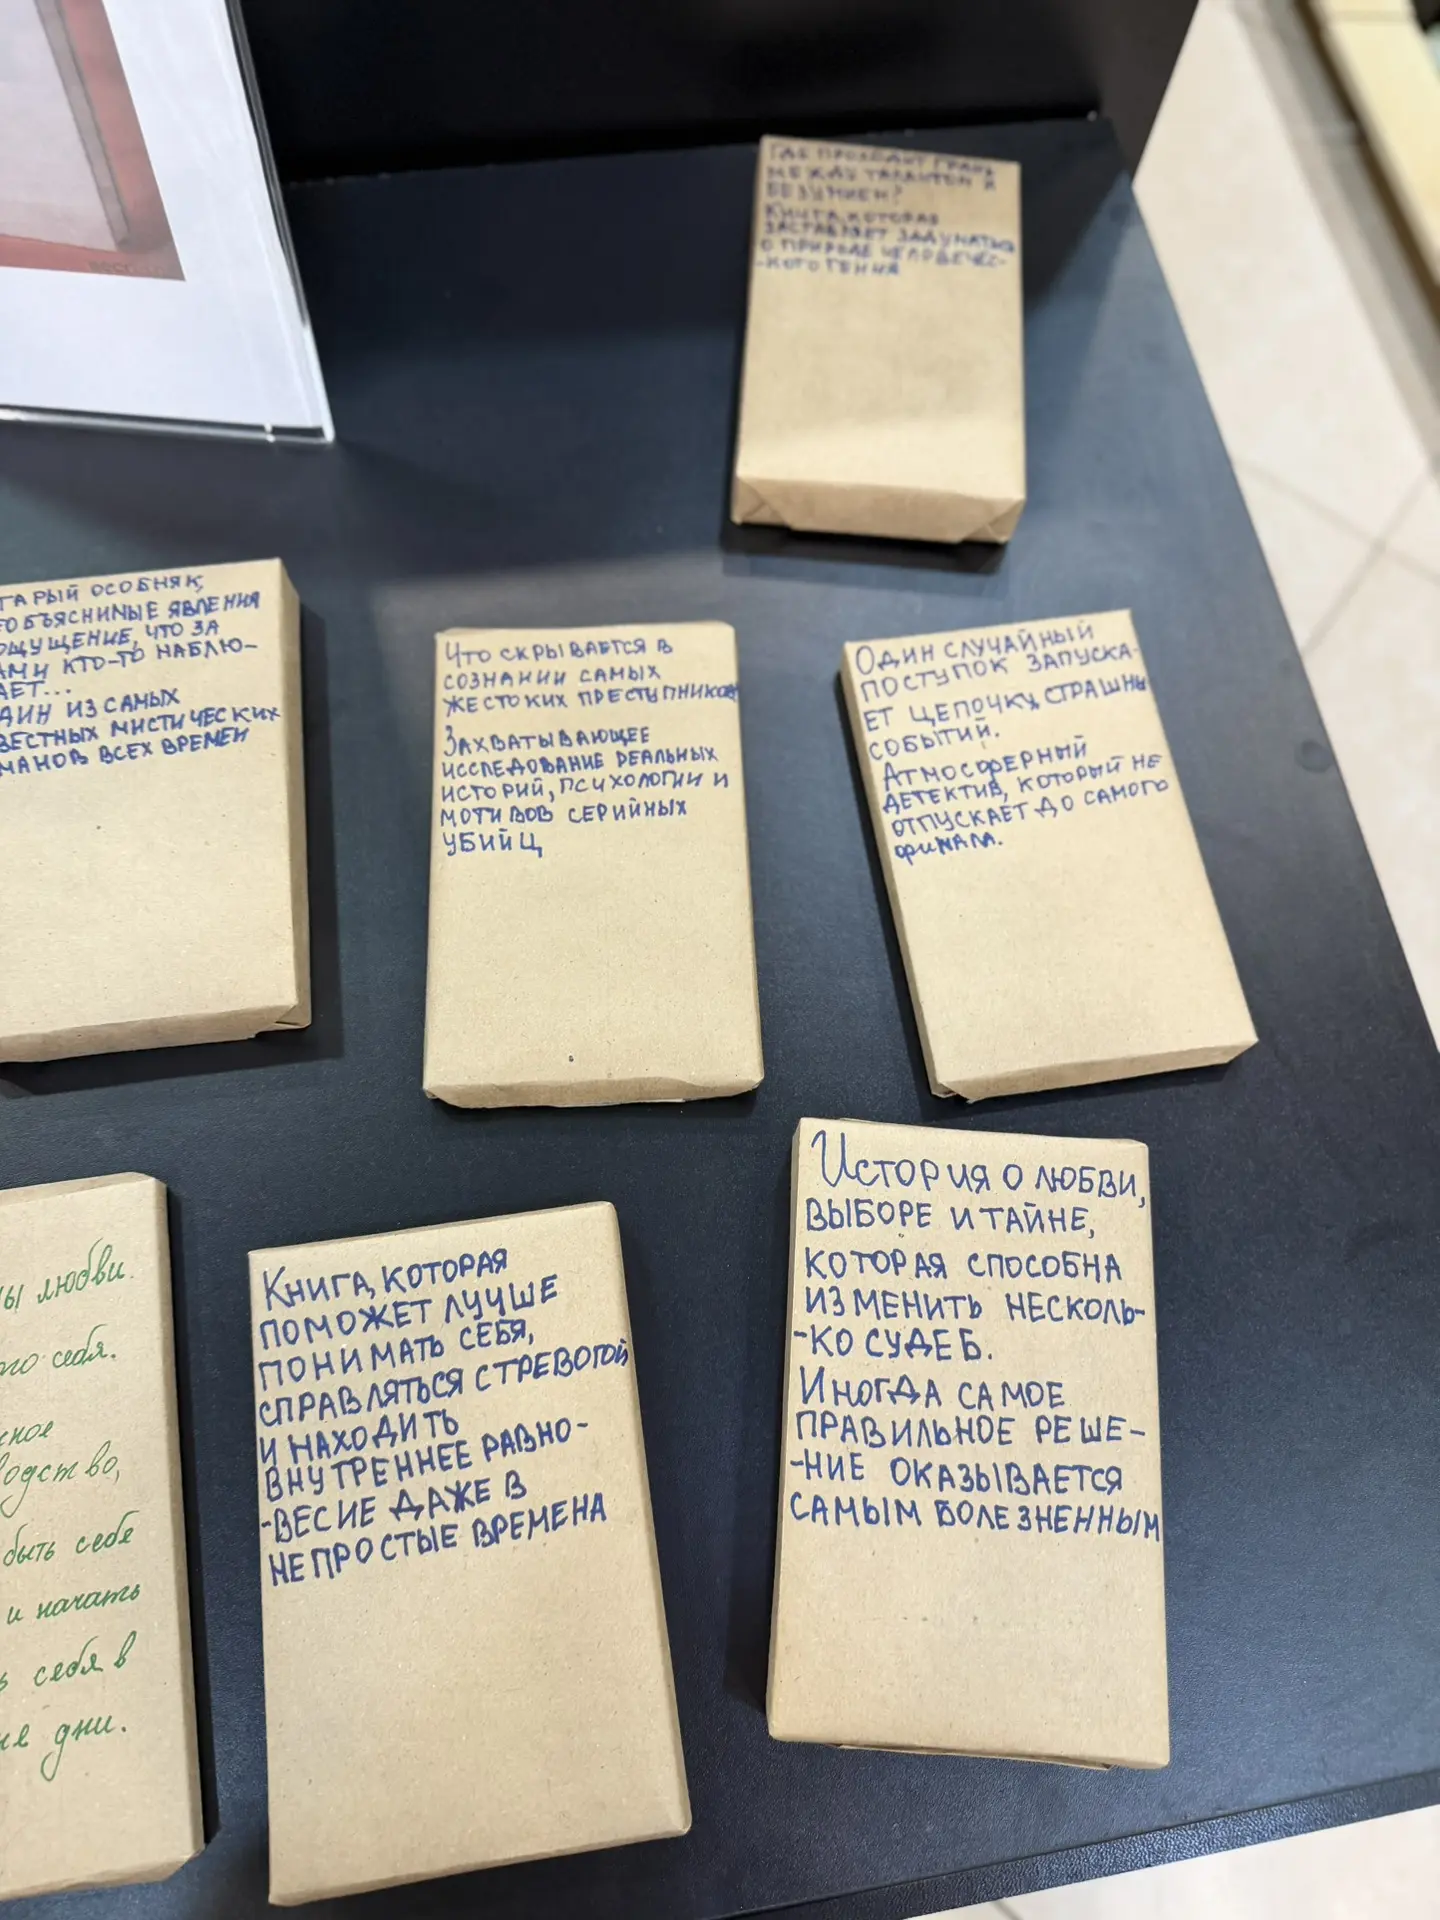 ГДЕ ПРОХОДИТ ГРАНЬ
МЕЖДУ ТАЛАНТОМ И
БЕЗУМИЕМ?
КНИГА, КОТОРАЯ
ЗАСТАВЛЯЕТ ЗАДУМАТЬСЯ
О ПРИРОДЕ ЧЕЛОВЕЧЕС-
-КОГО ГЕНИЯ
ОСОБНЯК,
ЯВЛЕНИЯ
ЧТО ЗА
КТО-ТО НАБЛЮ-
ИЗ САМЫХ
МИСТИЧЕСКИХ
ВСЕХ ВРЕМЕН
ЧТО СКРЫВАЕТСЯ В
СОЗНАНИИ САМЫХ
ЖЕСТОКИХ ПРЕСТУПНИКОВ
ЗАХВАТЫВАЮЩЕЕ
ИССЛЕДОВАНИЕ РЕАЛЬНЫХ
ИСТОРИЙ, ПСИХОЛОГИИ И
МОТИВОВ СЕРИЙНЫХ
УБИЙЦ
ОДИН СЛУЧАЙНЫЙ
ПОСТУПОК ЗАПУСКА-
ЕТ ЦЕПОЧКУ СТРАШНЫ
СОБЫТИЙ.
АТМОСФЕРНЫЙ
ДЕТЕКТИВ, КОТОРЫЙ НЕ
ОТПУСКАЕТ ДО САМОГО
ФИНАЛА.
любви.
себя.
быть себе
и начать
себя в
дни.
КНИГА, КОТОРАЯ
ПОМОЖЕТ ЛУЧШЕ
ПОНИМАТЬ СЕБЯ,
СПРАВЛЯТЬСЯ С ТРЕВОГОЙ
И НАХОДИТЬ
ВНУТРЕННЕЕ РАВНО-
-ВЕСИЕ ДАЖЕ В
НЕПРОСТЫЕ ВРЕМЕНА
ИСТОРИЯ О ЛЮБВИ,
ВЫБОРЕ И ТАЙНЕ,
КОТОРАЯ СПОСОБНА
ИЗМЕНИТЬ НЕСКОЛЬ-
-КО СУДЕБ.
ИНОГДА САМОЕ
ПРАВИЛЬНОЕ РЕШЕ-
-НИЕ ОКАЗЫВАЕТСЯ
САМЫМ БОЛЕЗНЕННЫМ